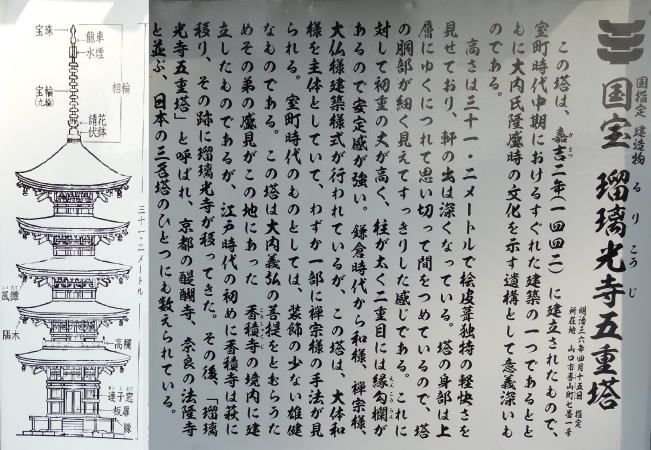 国指定 建造物
国宝 瑠璃光寺五重塔
る り こう じ
明治三六年四月十五日 指定
所在地 山口市香山町七番一号
この塔は、嘉吉二年(一四四二)に建立されたもので、
か きつ
室町時代中期におけるすぐれた建築の一つであるとと
もに大内氏隆盛時の文化を示す遺構として意義深いも
のである。
高さは三十一・二メートルで桧皮葺独特の軽快さを
見せており、軒の出は深くなっている。塔の身部は上
層にゆくにつれて思い切って間をつめているので、塔
の胴部が細く見えてすっきりした感じである。これに
対して初重の丈が高く、柱が太く二重目には縁勾欄が
あるので安定感が強い。鎌倉時代から和様、禅宗様、
大仏様建築様式が行われているが、この塔は、大体和
様を主体としていて、わずか一部に禅宗様の手法が見
られる。室町時代のものとしては、装飾の少ない雄健
なものである。この塔は大内義弘の菩提をとむらうた
めその弟の盛見がこの地にあった香積寺の境内に建
立したものであるが、江戸時代の初めに香積寺は萩に
移り、その跡に瑠璃光寺が移ってきた。その後、「瑠璃
光寺五重塔」と呼ばれ、京都の醍醐寺、奈良の法隆寺
と並ぶ、日本の三名塔のひとつにも数えられている。
宝珠
龍車
水煙
相輪
宝輪
(九輪)
請花
伏鉢
三十一・二メートル
風鐸
隅木
高欄
連子窓
板扉
縁